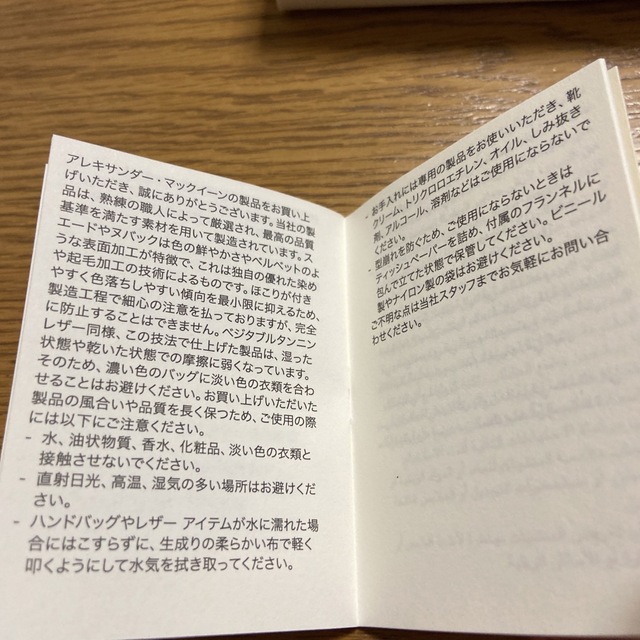 アレキサンダー・マックイーンの製品をお買い上
げいただき、誠にありがとうございます。当社の製
品は、熟練の職人によって厳選され、最高の品質
基準を満たす素材を用いて製造されています。ス
エードやヌバックは色の鮮やかさやベルベットのよ
うな表面加工が特徴で、これは独自の優れた染め
や起毛加工の技術によるものです。ほこりが付き
やすく色落ちしやすい傾向を最小限に抑えるため、
製造工程で細心の注意を払っておりますが、完全
に防止することはできません。ベジタブルタンニン
レザー同様、この技法で仕上げた製品は、湿った
状態や乾いた状態での摩擦に弱くなっています。
そのため、濃い色のバッグに淡い色の衣類を合わ
せることはお避けください。お買い上げいただいた
製品の風合いや品質を長く保つため、ご使用の際
には以下にご注意ください。
- 水、油状物質、香水、化粧品、淡い色の衣類と
接触させないでください。
- 直射日光、高温、湿気の多い場所はお避けくだ
さい。
- ハンドバッグやレザー アイテムが水に濡れた場
合にはこすらずに、生成りの柔らかい布で軽く
叩くようにして水気を拭き取ってください。
- お手入れには専用の製品をお使いいただき、靴
クリーム、トリクロロエチレン、オイル、しみ抜き
剤、アルコール、溶剤などはご使用にならないで
ください。
- 型崩れを防ぐため、ご使用にならないときは
ティッシュペーパーを詰め、付属のフランネルに
包んで立てた状態で保管してください。ビニール
製やナイロン製の袋はお避けください。
ご不明な点は当社スタッフまでお気軽にお問い合
わせください。